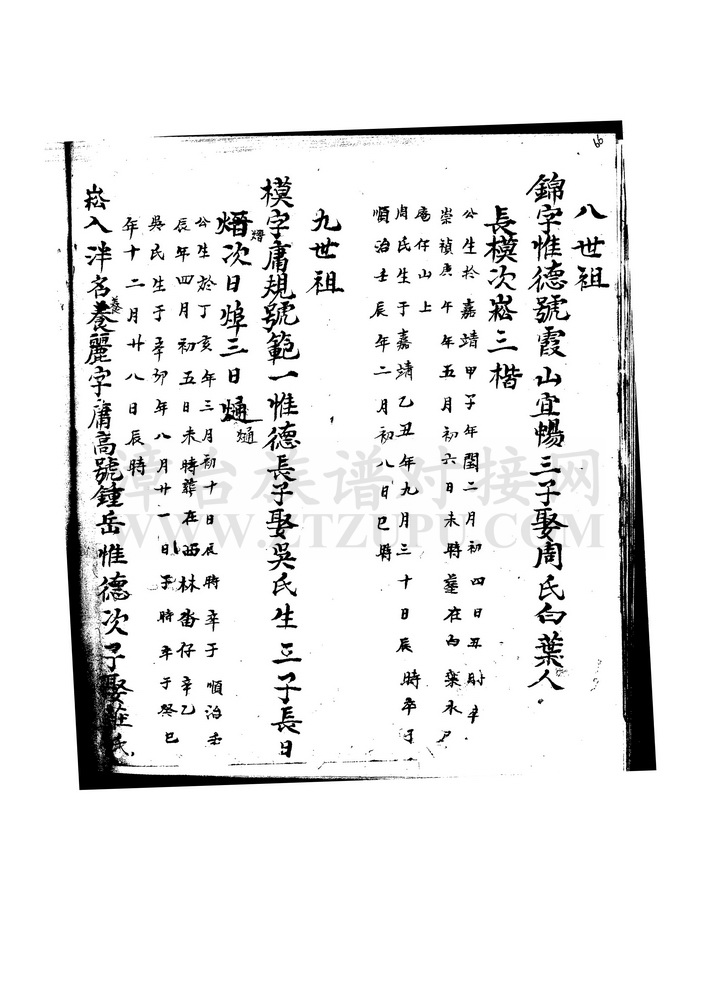 66
八世祖
錦字惟德號霞山宜暢三子娶周氏白葉人
長模次崧三楷
公生於嘉靖甲子年閏二月初四日丑時卒
崇禎庚午年五月初六日未時葬在白葉永
庵仔山上
周氏生于嘉靖乙丑年九月三十日辰時卒于
順治壬辰年二月初八日巳時
九世祖
模字庸規號範一惟德長子娶吳氏生三子長日
熠次日焞三日熥
熠
熥
公生於丁亥年三月初十日辰時卒于順治壬
辰年四月初五日未時葬在西林畓仔辛乙
吳氏生于辛卯年八月廿一日子時卒于癸巳
年十二月廿八日辰時
崧入泮名養麗字庸高號鍾岳惟德次子娶莊氏
漳台族谱对接网
WWW.ZTZUPU.COM